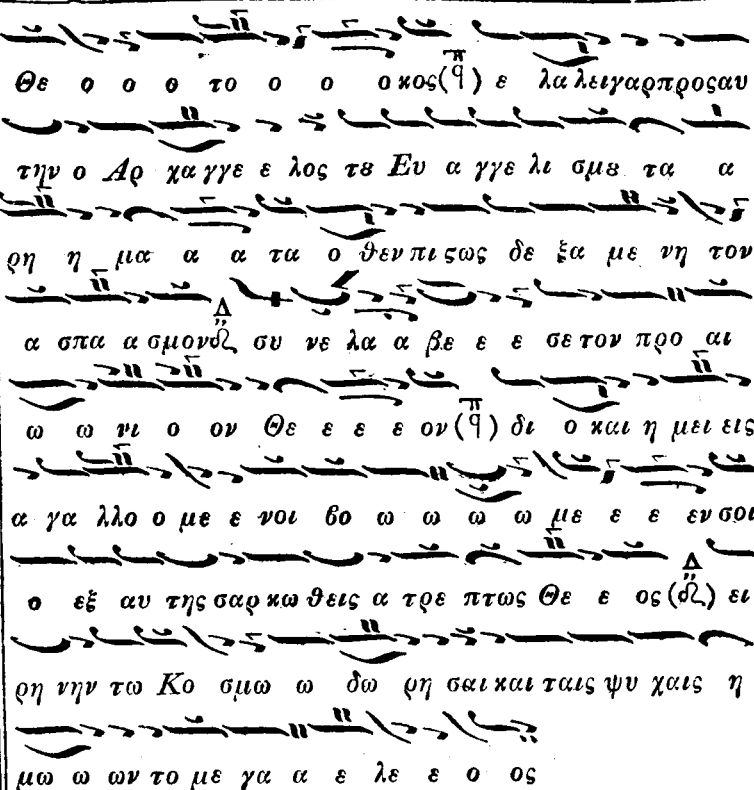 Θε ο ο ο το ο ο ο οκος (π̈ q) ε λα λει γαρ προς αυ
την ο Αρ χα γγε ε λος τȣ Ευ α γγε λι σμȣ τα α
ρη η μα α α τα ο θεν πι ϛως δε ξα με νη τον
α σπα α σμον Δ συ νε λα α βε ε ε σε τον προ αι
ω ω νι ο ον Θε ε ε ε ον (π q) δι ο και η μει εις
α γα λλο ο με ε νοι βο ω ω ω ω με ε ε εν σοι
ο εξ αυ της σαρ κω θεις α τρε πτως Θε ε ος (Δ) ει
ρη νην τω Κο σμω ω δω ρη σαι και ταις ψυ χαις η
μω ω ων το με γα α ε λε ε ο ος